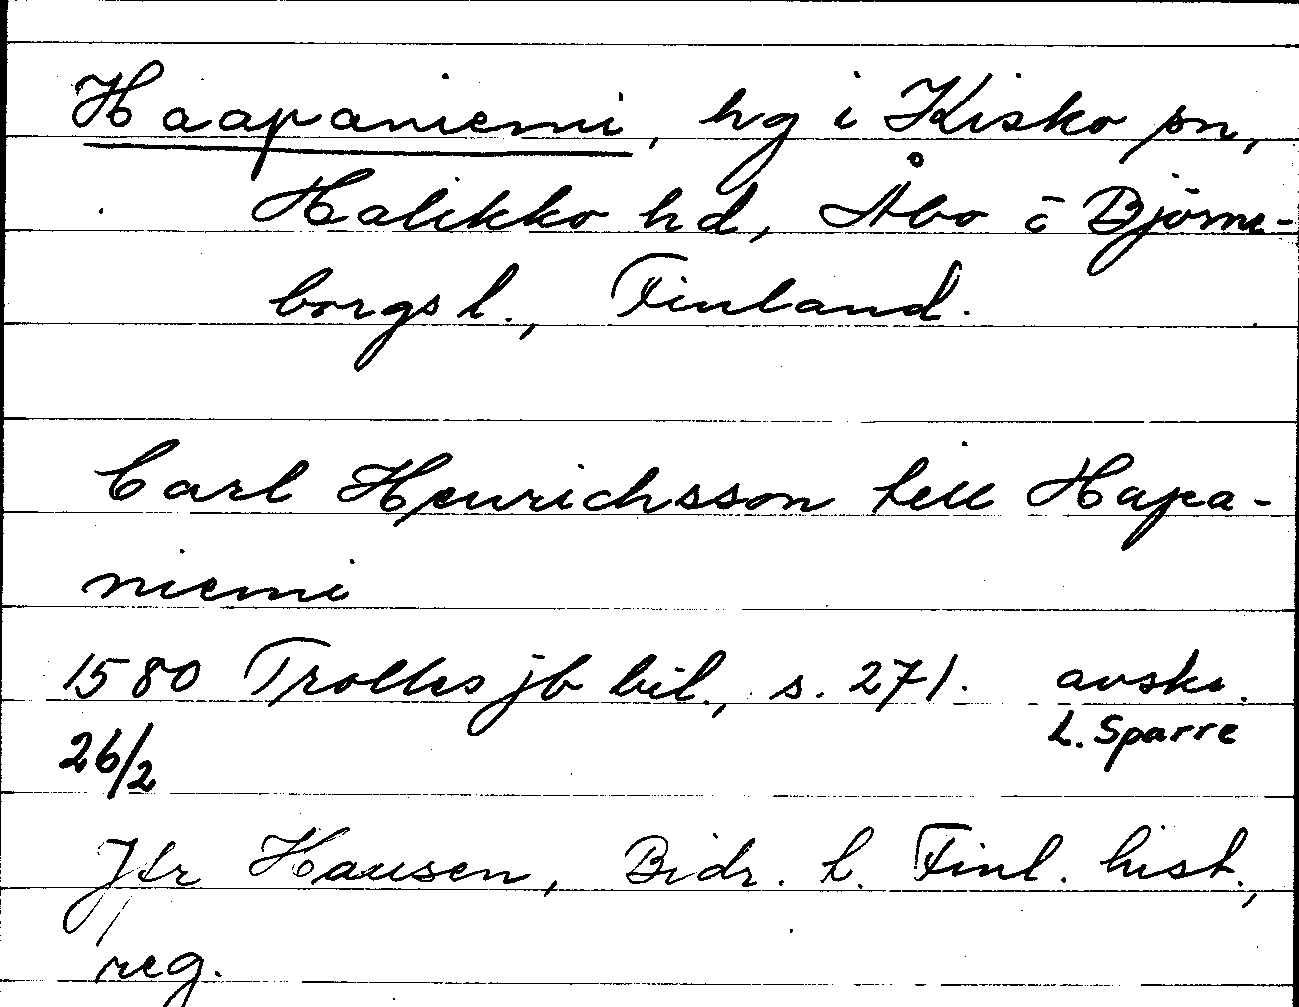 Haapaniemi, hg i Kisko sn,
Halikko hd, Åbo o Björne-
borgs l., Finland.
Carl Henrichsson till Hapa-
niemi
1580 Trolles jb bil., s. 271. avskr.
26/2 L. Sparre
Jfr Hausen, Bidr. t. Finl. hist.,
reg.